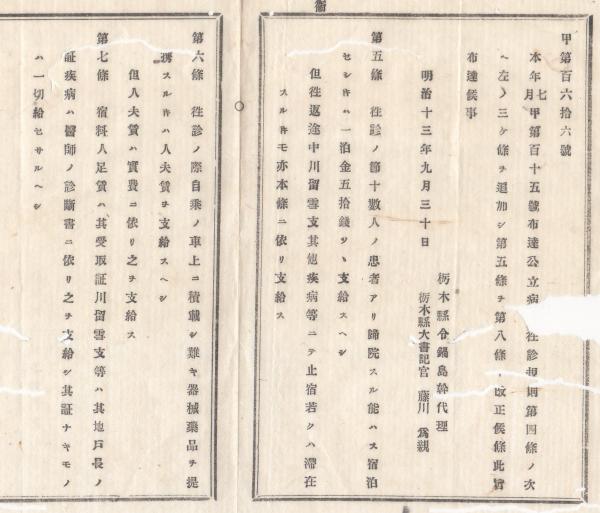 衞
甲第百六拾六號
本年七月甲第百十五號布達公立病 徃診規則第四條ノ次
ヘ左ノ三ケ條ヲ追加シ第五條ヲ第八條 改正候條此旨
布達候事
明治十三年九月三十日
栃木縣令鍋島幹代理
栃木縣大書記官 藤川爲親
第五條 徃診ノ節十數人ノ患者アリ歸院スル能ハス宿泊
セシキハ一泊金五拾錢ツヽ支給スヘシ
但徃返途中川留雪支其他疾病等ニテ止宿若クハ滯在
スルキモ亦本條ニ依リ支給ス
第六條 徃診ノ際自乘ノ車上ニ積載シ難キ器械藥品ヲ提
携スルキハ人夫賃ヲ支給スヘシ
但人夫賃ハ實費ニ依リ之ヲ支給ス
第七條 宿料人足賃ハ其受取証川留雪支等ハ其地戸長ノ
証疾病ハ醫師ノ診斷書ニ依リ之ヲ支給シ其証ナキモノ
ハ一切給セサルヘシ